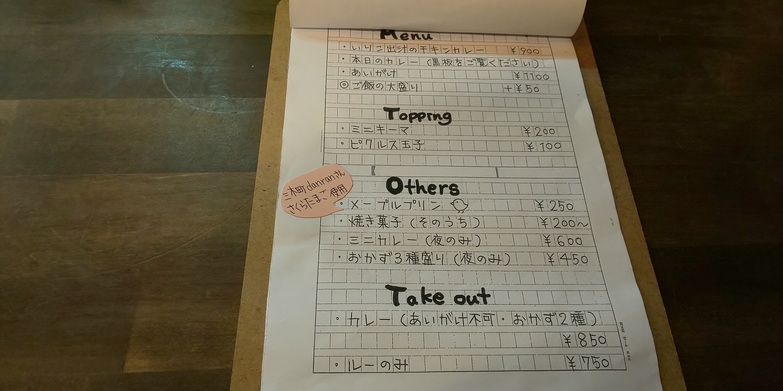 Menu
・いりこ出汁のチキンカレー ¥900
・本日のカレー(黒板をご覧ください)
・あいがけ ¥1100
◎ご飯の大盛り +¥50
Topping
・ミニキーマ ¥200
・ピクルス玉子 ¥100
三木町danranさん
さくらたまご使用
Others
・メープルプリン ¥250
・焼き菓子(そのうち) ¥200~
・ミニカレー(夜のみ) ¥600
・おかず3種盛り(夜のみ) ¥450
Take out
・カレー(あいがけ不可・おかず2種)
¥850
・ルーのみ ¥750